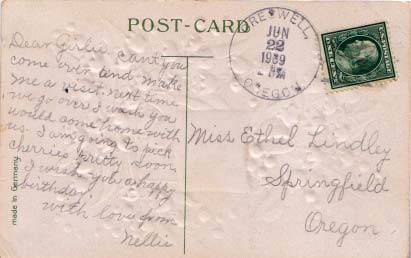 POST-CARD
CRESWELL,
JUN
22
1939
OREGON
Dear Girlie, can't you
come over and make
me a visit. next time
we go over I wish you
would come home with
us. I am going to pick
cherries pretty soon
I wish you a happy
birthday
with love from
Nellie
Miss Ethel Lindley
Springfield
Oregon.
made in Germany